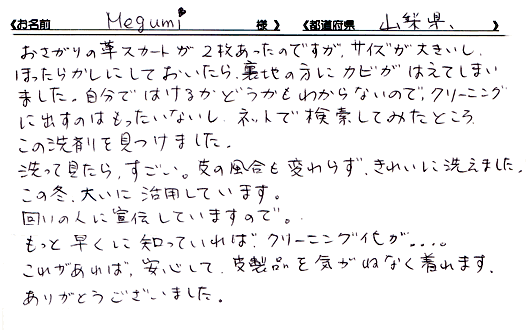 《お名前 Megumi 様 》 《都道府県 山梨県、 》
おさがりの革スカートが2枚あったのですが、サイズが大きいし、
ほったらかしにしておいたら、裏地の方にカビがはえてしまい
ました。自分ではけるかどうかもわからないので、クリーニング
に出すのはもったいないし、ネットで検索してみたところ
この洗剤を見つけました。
洗って見たら、すごい。皮の風合も変わらず、きれいに洗えました。
この冬、大いに活用しています。
回りの人に宣伝していますので。
もっと早くに知っていれば、クリーニング代が....
これがあれば、安心して、皮製品を気がねなく着れます。
ありがとうございました。